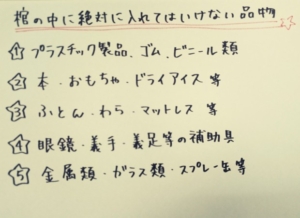 棺の中に絶対に入れてはいけない品物
① プラスチック製品、ゴム、ビニール類
② 本・おもちゃ・ドライアイス 等
③ ふとん・わら・マットレス 等
④ 眼鏡・義手・義足等の補助具
⑤ 金属類・ガラス類・スプレー缶等